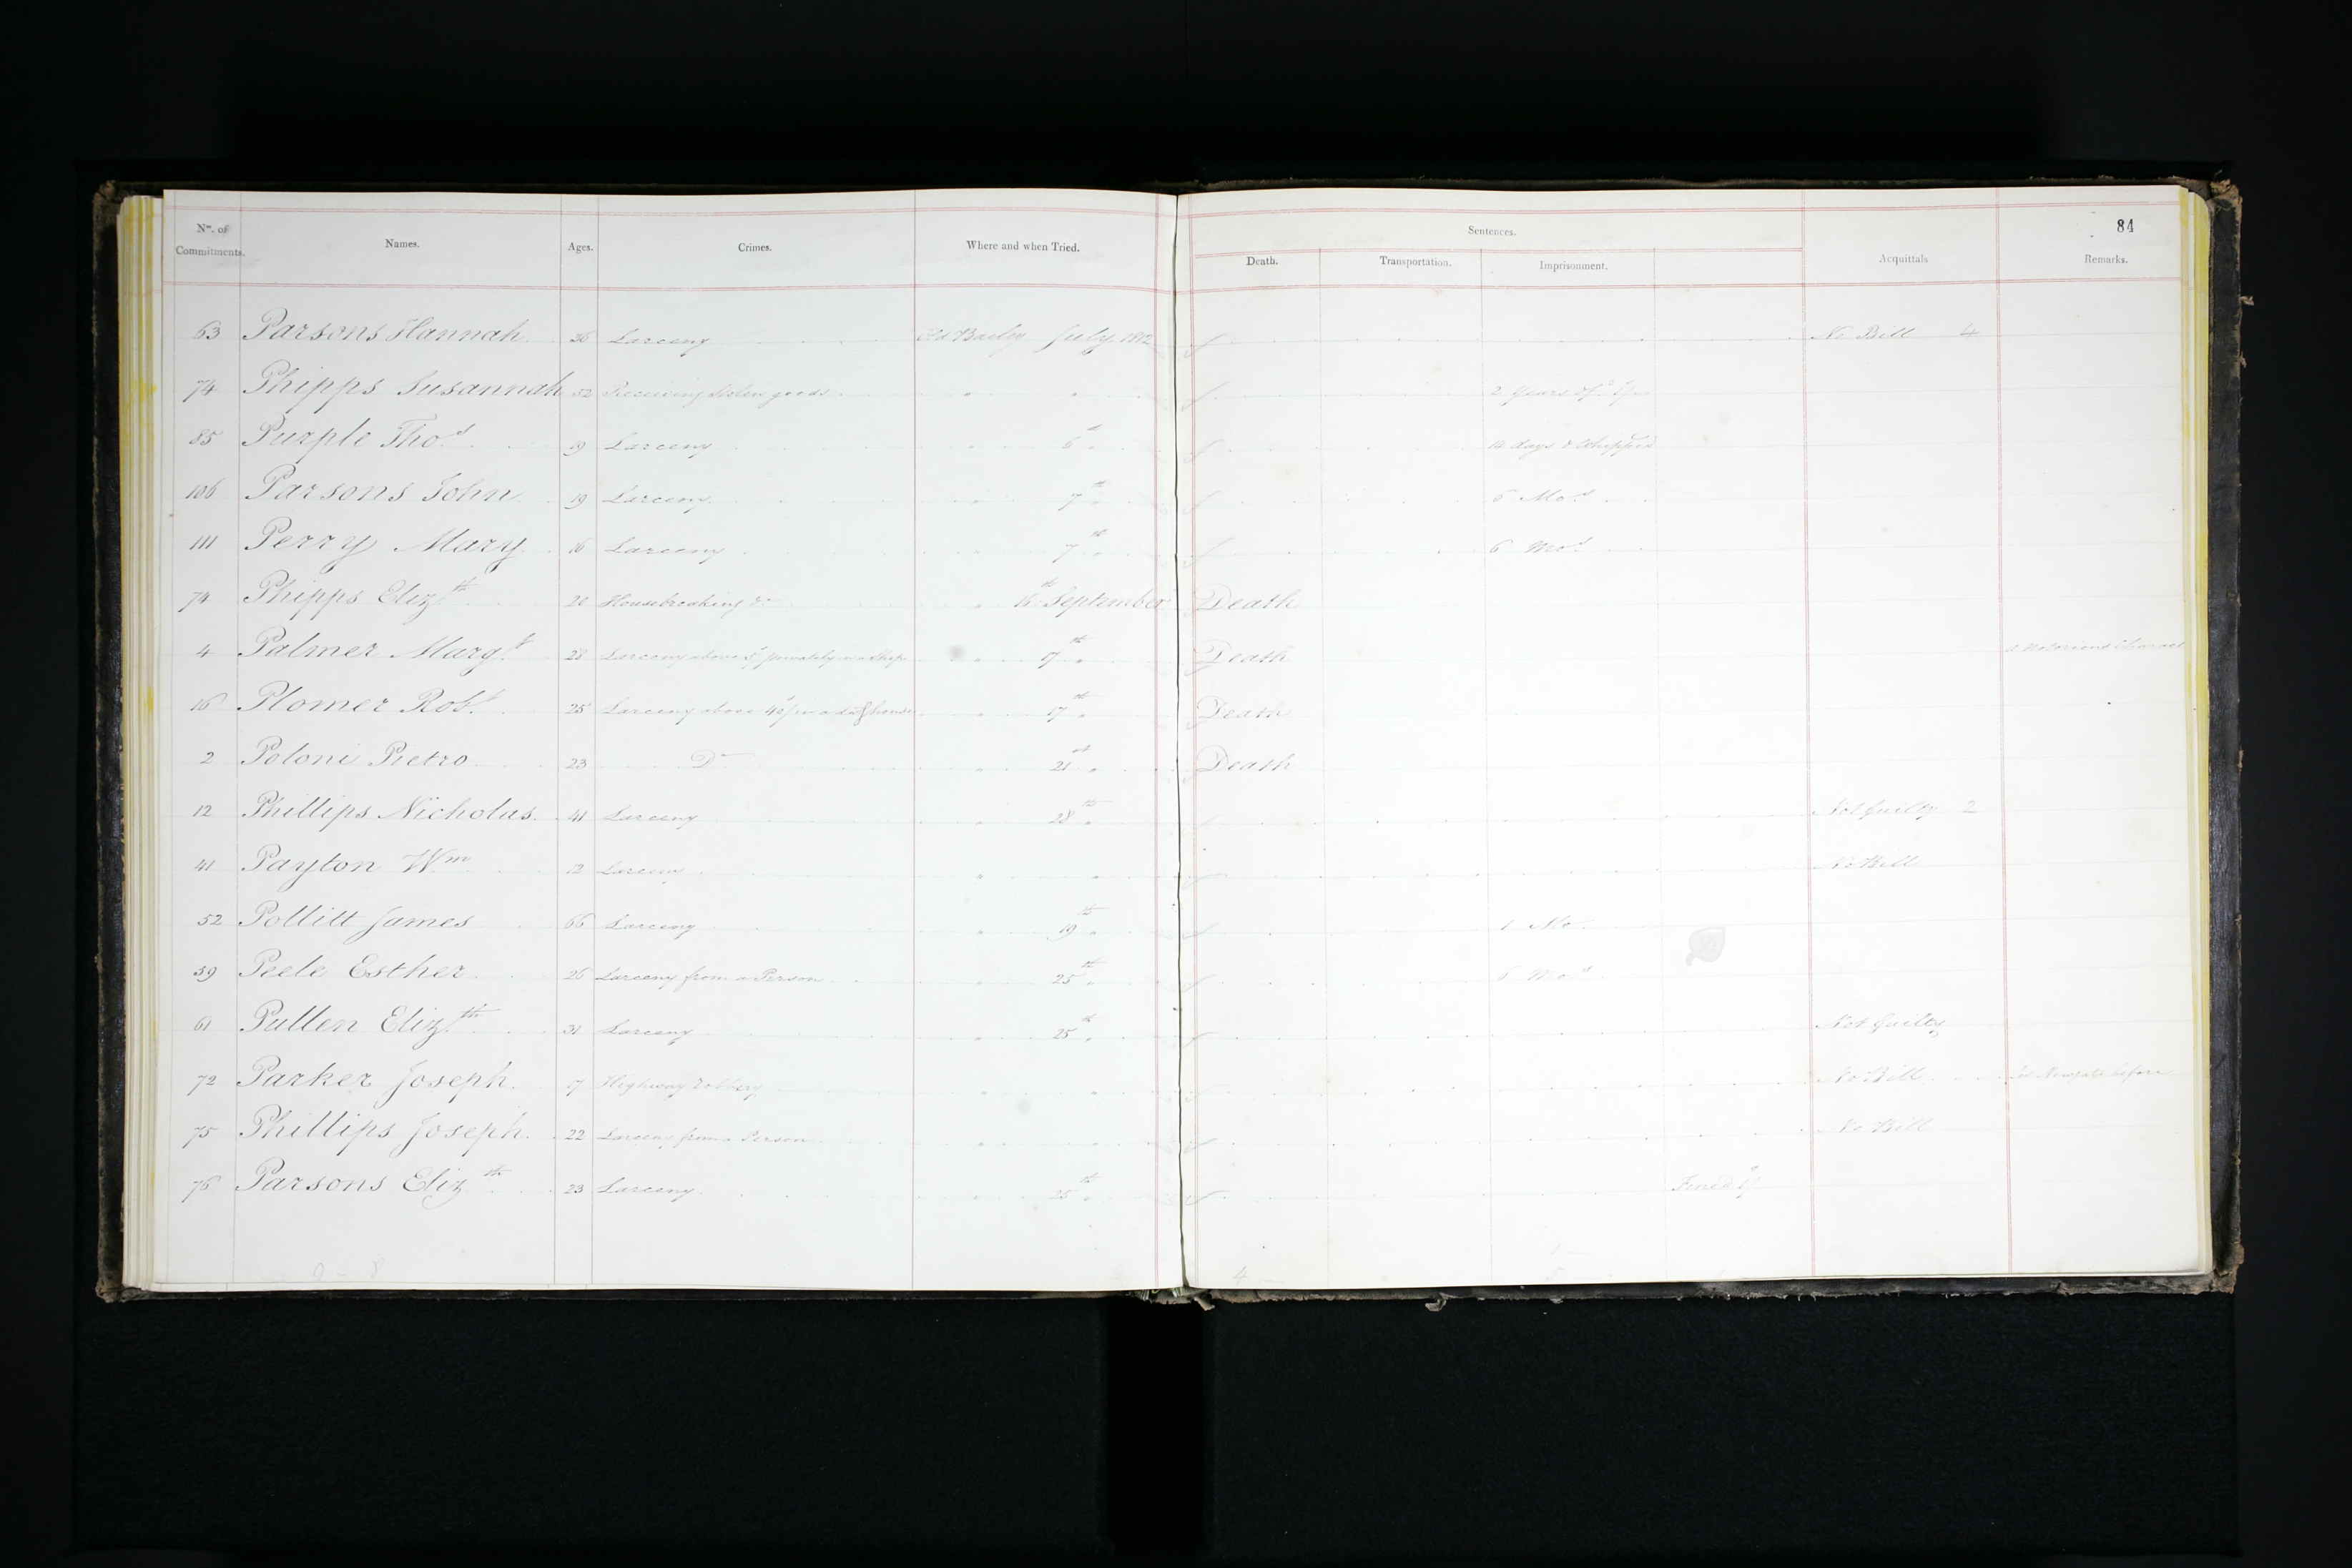 84
Nos. of Commitments. Names. Ages. Crimes. Where and when Tried. Sentences. Death. Transportation. Imprisonment. Acquittals Remarks.
63 Parsons Hannah 36 Larceny Old Bailey July 1812 No Bill 4
74 Phipps Susannah 52 Receiving Stolen goods " " 2 Years
85 Purple Thos. 19 Larceny " 6th " 10 days & Whipped
106 Parsons John 19 Larceny " 7th " 6 Mos.
111 Perry Mary 16 Larceny " 7th " 6 Mos.
74 Phipps Elizth 20 Housebreaking &c " 16th September Death
4 Palmer Margt. 28 Larceny above 5s/ privately in a Shop " 17th " Death a Notorious Charact
16 Plomer Robt. 25 Larceny above 40s/ in a dwg house " 17th " Death
2 Poloni Pietro 23 Do " 21st " Death
12 Phillips Nicholas 41 Larceny " 28th " Not Guilty 2
41 Payton Wm 12 Larceny " " No Bill
52 Pollitt James 66 Larceny " 19th " 1 Mo.
59 Peele Esther 26 Larceny from a Person " 25th " 6 Mos
61 Pullen Elizth 31 Larceny " 25th " Not Guilty
72 Parker Joseph 17 Highway robbery " " No Bill In Newgate before
75 Phillips Joseph 22 Larceny from a Person " " No Bill
76 Parsons Elizth 23 Larceny " 25th " Fined 1s/
9 - 8 4